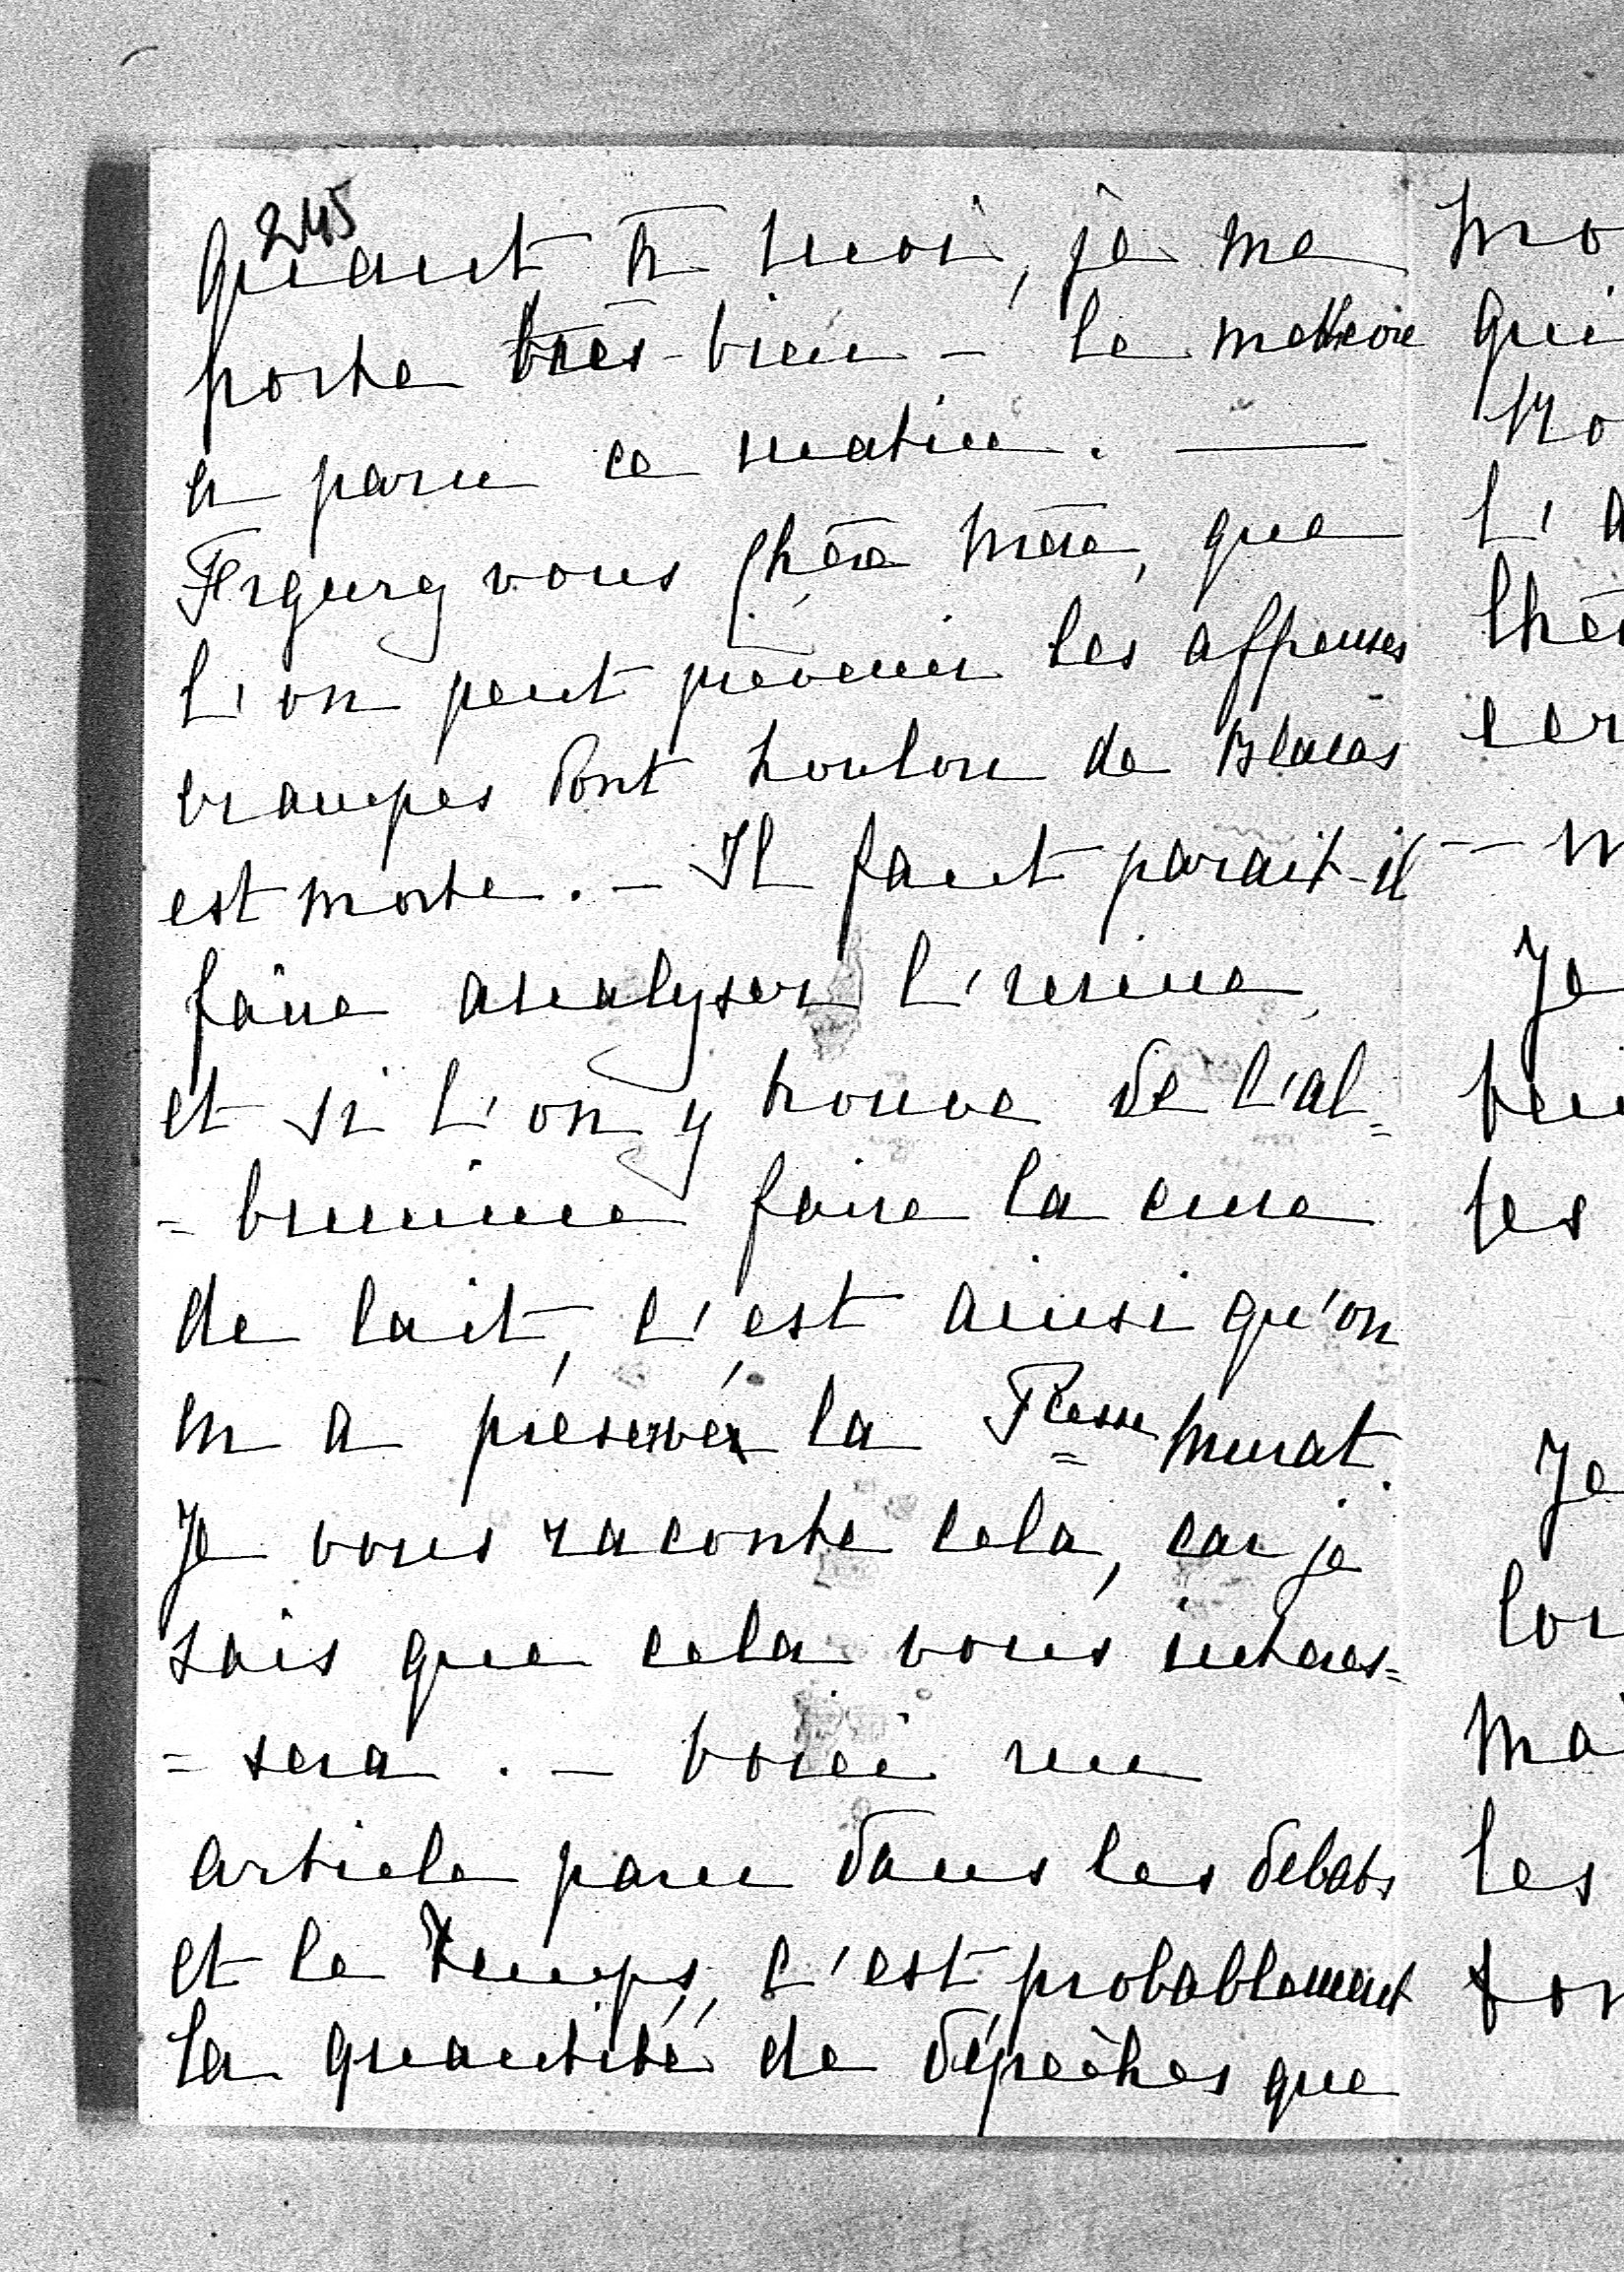 245
Quant à moi, je me
porte très-bien - le
a paru ce matin. —
Figurez vous chère mère, que
l'on peut prévenir les affreuses
crampes dont Loulou de Blacas
est morte. - Il faut parait-il
faire analyser l'urine
et si l'on y trouve de l'al=
=bumine faire la cure
de lait, c'est ainsi qu'on
en a préservé la Pcesse Murat.
Je vous raconte cela, car je
sais que cela vous interes=
=sera. - Voici un
article paru dans les débats
et le Temps, c'est probablement
la quantité de dépêches que
mo
qui
No
l'a
chè
cer
Je
les
Je
ma
les